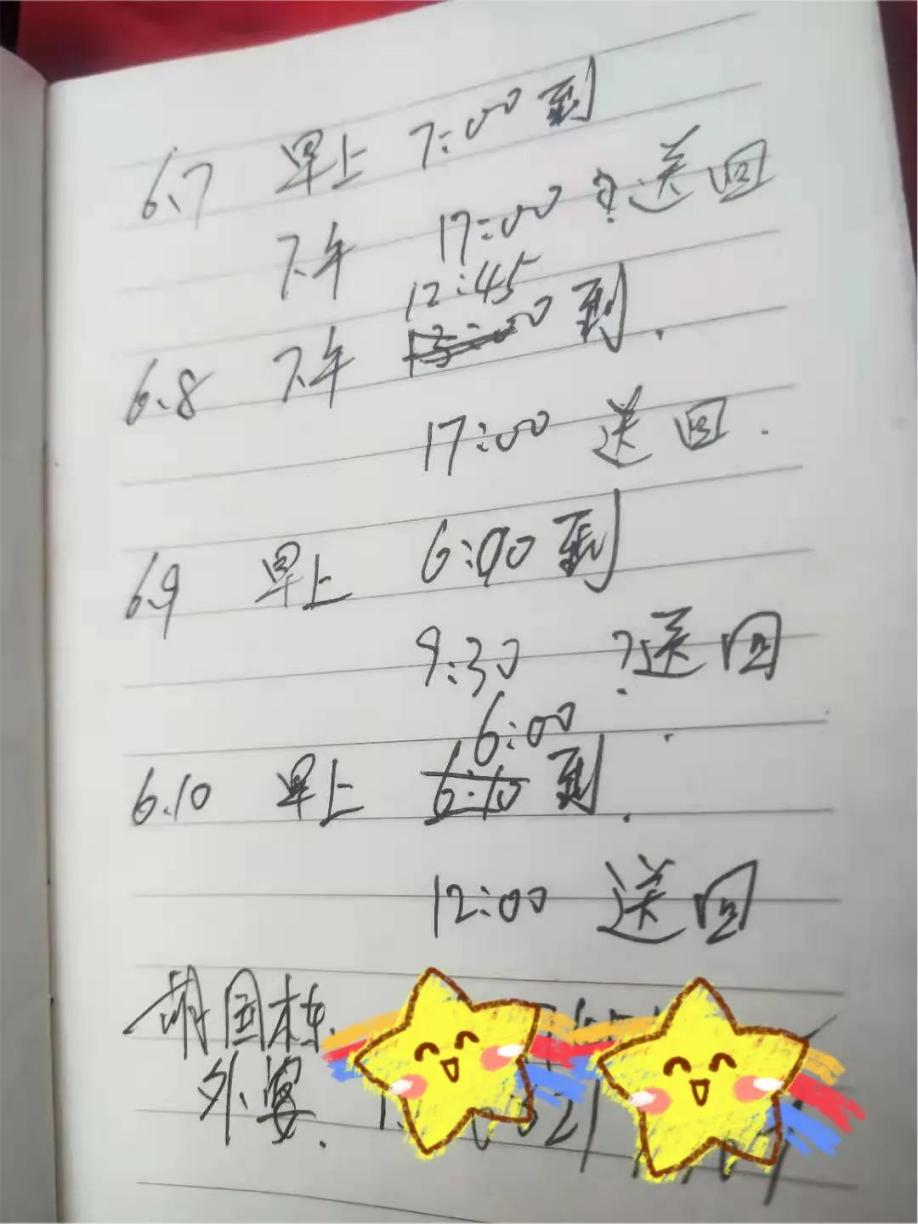 6.7 早上 7:00到
下午 17:00 送回
12:45
6.8 下午 13:00到.
17:00 送回.
6.9 早上 6:00到
9:30 送回
6:00
6.10 早上 6:10到.
12:00 送回
胡国栋
外宴.